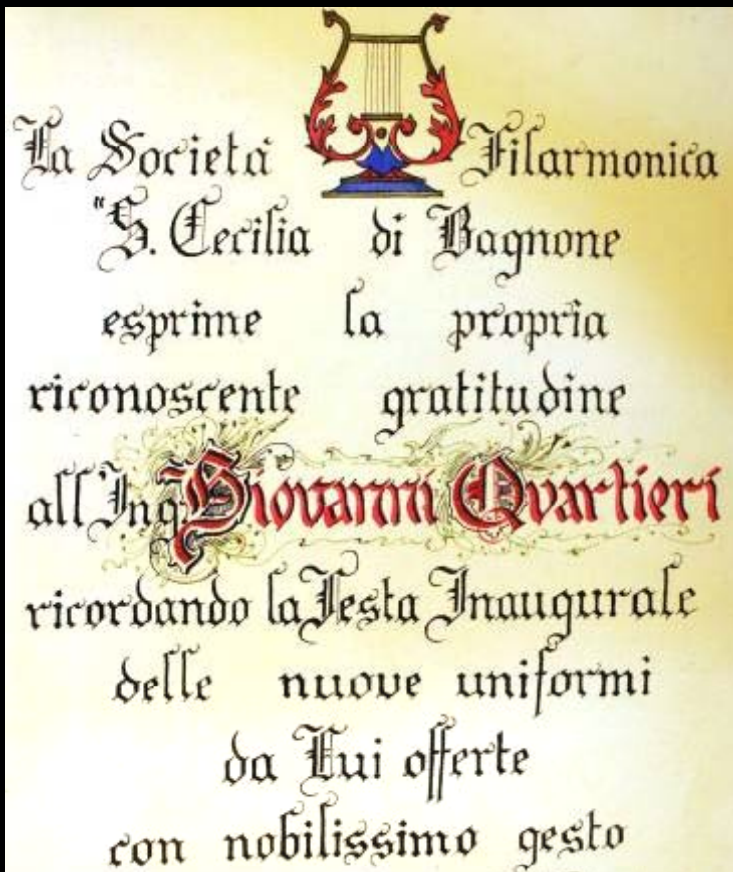 La Società Filarmonica
"S. Cecilia di Bagnone
esprime la propria
riconoscente gratitudine
all'Ing. Giovanni Quartieri
ricordando la Festa Inaugurale
delle nuove uniformi
da Lui offerte
con nobilissimo gesto